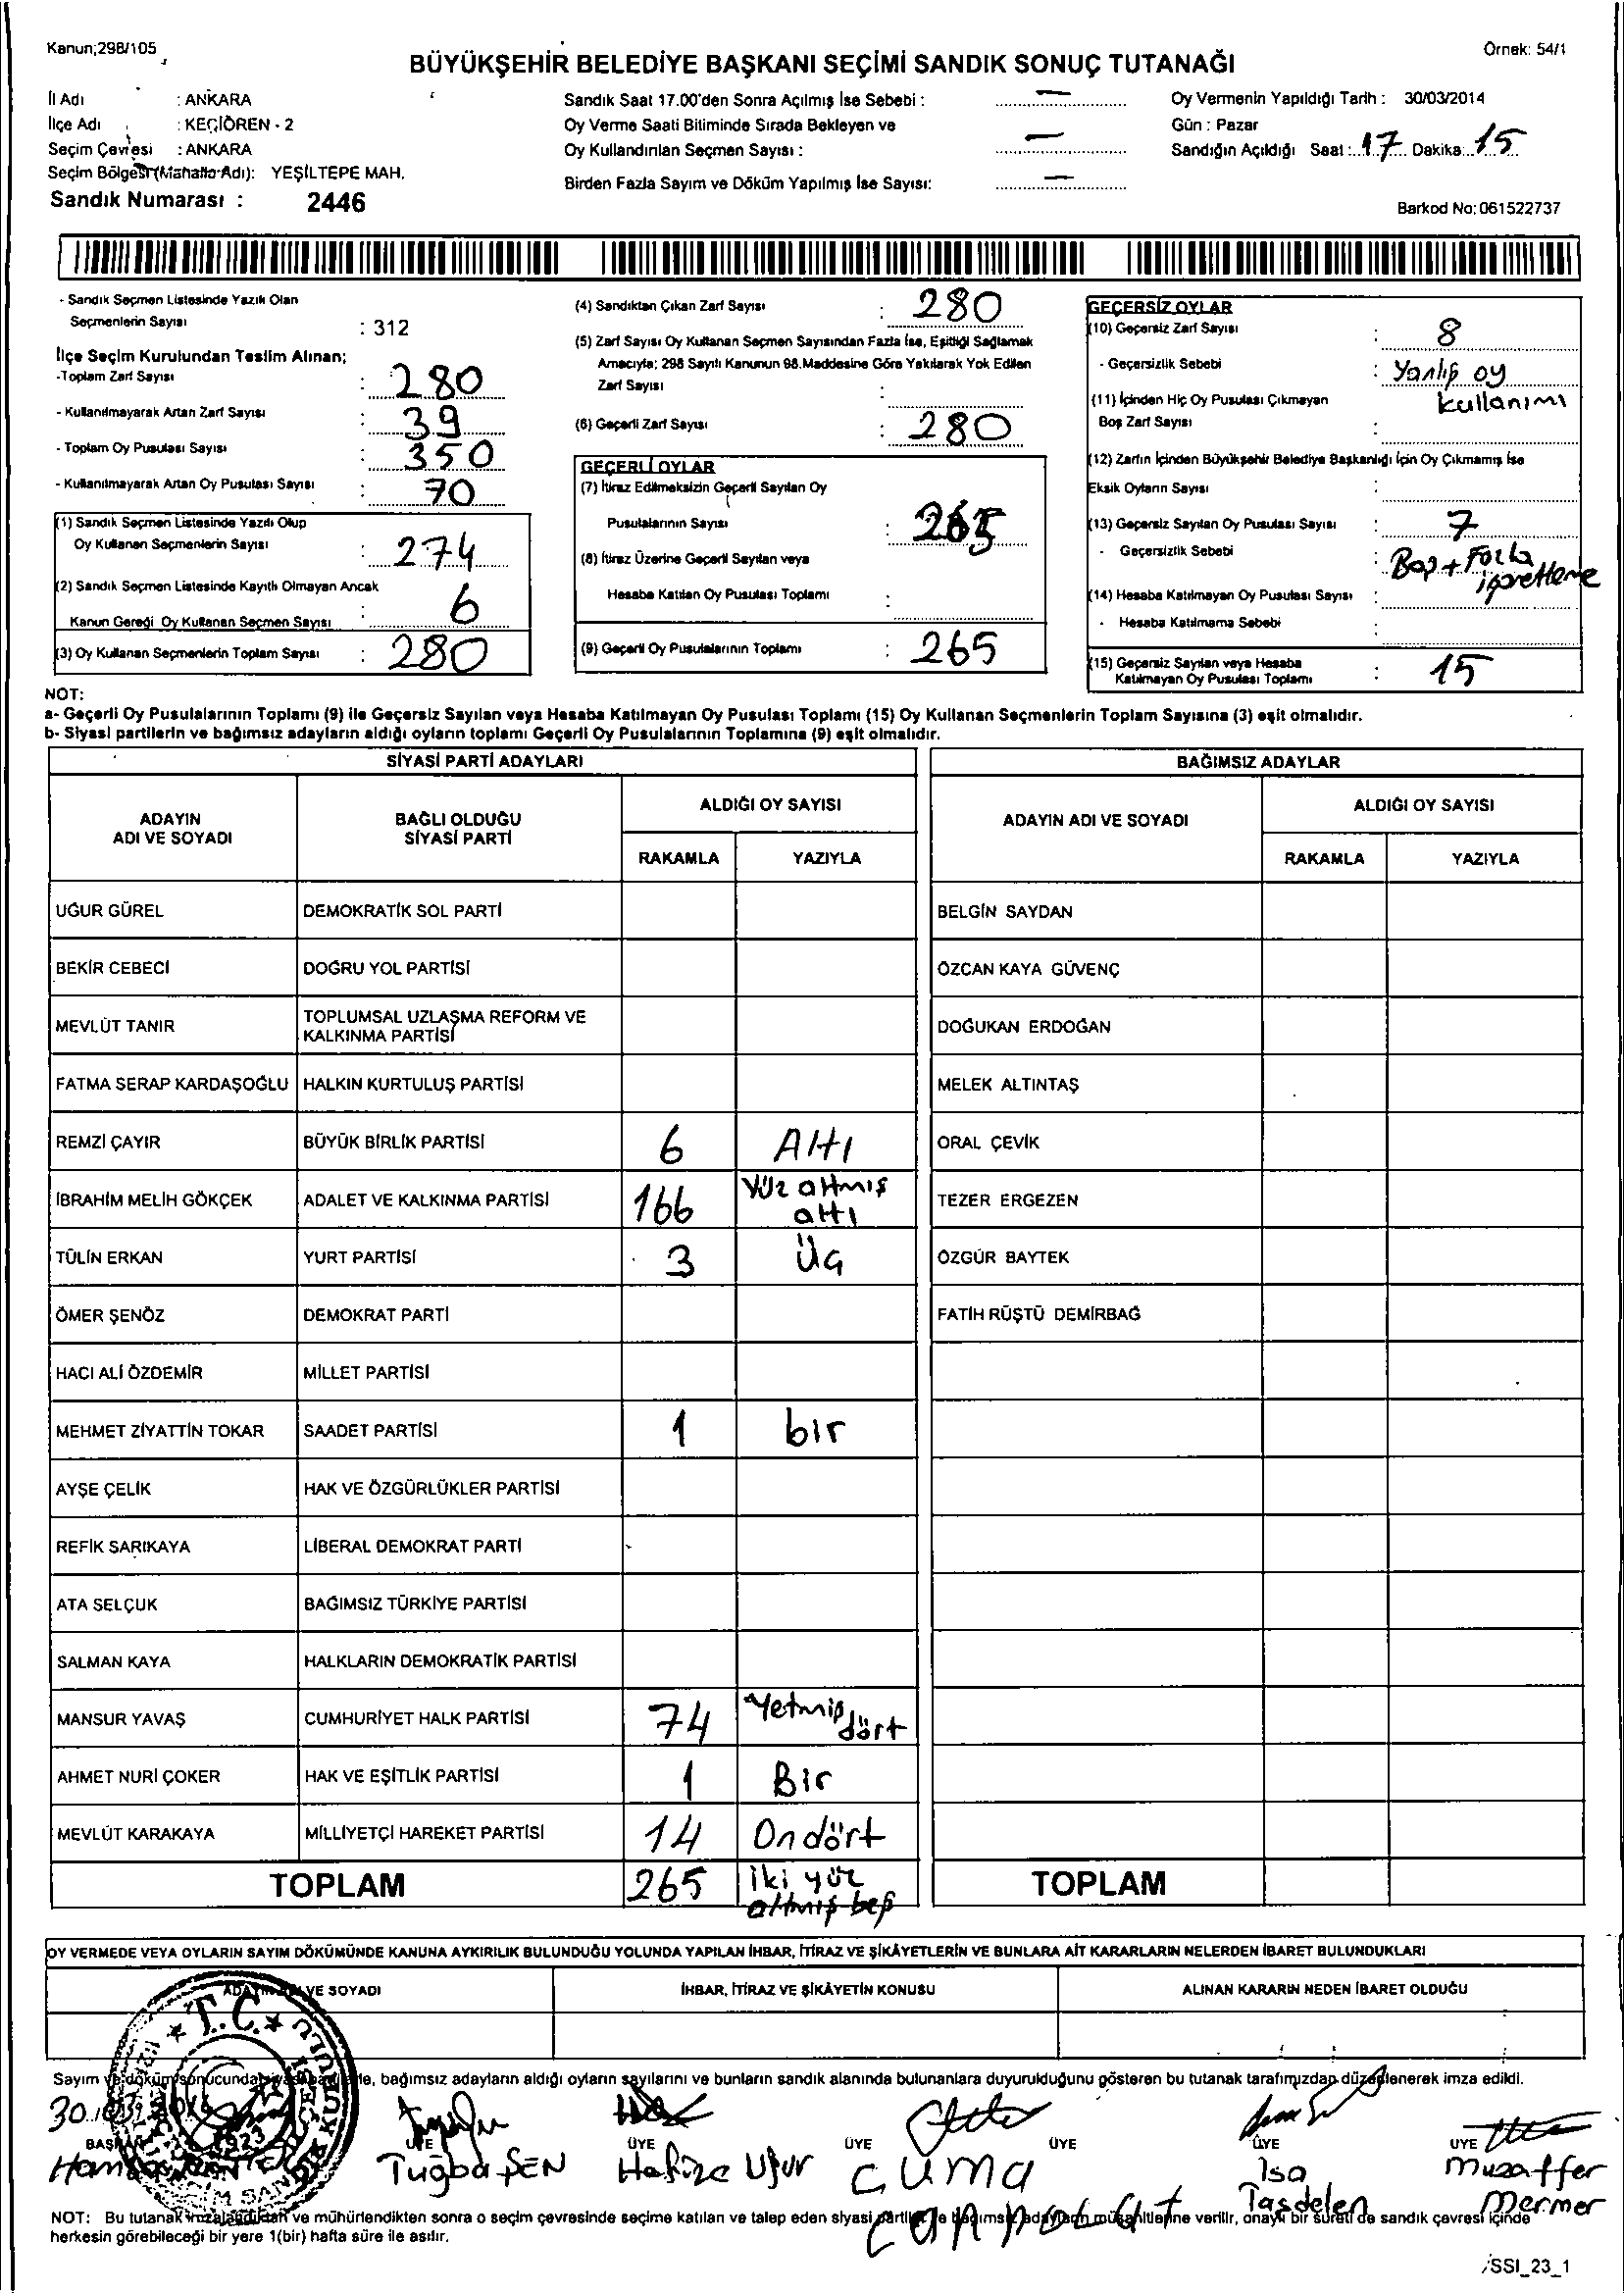 Kanun;298/105
Örnek: 54/1
BÜYÜKŞEHİR BELEDİYE BAŞKANI SEÇİMİ SANDIK SONUÇ TUTANAĞI
İl Adı : ANKARA
İlçe Adı : KEÇİÖREN - 2
Seçim Çevresi : ANKARA
Seçim Bölgesi (Mahalle Adı): YEŞİLTEPE MAH.
Sandık Numarası : 2446
Sandık Saat 17.00'den Sonra Açılmış İse Sebebi : —
Oy Verme Saati Bitiminde Sırada Bekleyen ve
Oy Kullandırılan Seçmen Sayısı : —
Birden Fazla Sayım ve Döküm Yapılmış İse Sayısı: —
Oy Vermenin Yapıldığı Tarih : 30/03/2014
Gün : Pazar
Sandığın Açıldığı Saat : 17 Dakika: 15
Barkod No: 061522737
- Sandık Seçmen Listesinde Yazılı Olan
Seçmenlerin Sayısı : 312
İlçe Seçim Kurulundan Teslim Alınan;
-Toplam Zarf Sayısı : 280
- Kullanılmayarak Artan Zarf Sayısı : 39
- Toplam Oy Pusulası Sayısı : 350
- Kullanılmayarak Artan Oy Pusulası Sayısı : 70
(1) Sandık Seçmen Listesinde Yazılı Olup
Oy Kullanan Seçmenlerin Sayısı : 274
(2) Sandık Seçmen Listesinde Kayıtlı Olmayan Ancak
Kanun Gereği Oy Kullanan Seçmen Sayısı : 6
(3) Oy Kullanan Seçmenlerin Toplam Sayısı : 280
(4) Sandıktan Çıkan Zarf Sayısı : 280
(5) Zarf Sayısı Oy Kullanan Seçmen Sayısından Fazla İse, Eşitliği Sağlamak
Amacıyla; 298 Sayılı Kanunun 98.Maddesine Göre Yakılarak Yok Edilen
Zarf Sayısı :
(6) Geçerli Zarf Sayısı : 280
GEÇERLİ OYLAR
(7) İtiraz Edilmeksizin Geçerli Sayılan Oy
Pusulalarının Sayısı : 265
(8) İtiraz Üzerine Geçerli Sayılan veya
Hesaba Katılan Oy Pusulası Toplamı :
(9) Geçerli Oy Pusulalarının Toplamı : 265
GEÇERSİZ OYLAR
(10) Geçersiz Zarf Sayısı : 8
- Geçersizlik Sebebi : Yanlış oy
kullanımı
(11) İçinden Hiç Oy Pusulası Çıkmayan
Boş Zarf Sayısı :
(12) Zarfın İçinden Büyükşehir Belediye Başkanlığı İçin Oy Çıkmamış İse
Eksik Oyların Sayısı :
(13) Geçersiz Sayılan Oy Pusulası Sayısı : 7
- Geçersizlik Sebebi : Boş + Fazla
işaretleme
(14) Hesaba Katılmayan Oy Pusulası Sayısı :
- Hesaba Katılmama Sebebi :
(15) Geçersiz Sayılan veya Hesaba
Katılmayan Oy Pusulası Toplamı : 15
NOT:
a- Geçerli Oy Pusulalarının Toplamı (9) ile Geçersiz Sayılan veya Hesaba Katılmayan Oy Pusulası Toplamı (15) Oy Kullanan Seçmenlerin Toplam Sayısına (3) eşit olmalıdır.
b- Siyasi partilerin ve bağımsız adayların aldığı oyların toplamı Geçerli Oy Pusulalarının Toplamına (9) eşit olmalıdır.
SİYASİ PARTİ ADAYLARI
ADAYIN
ADI VE SOYADI
BAĞLI OLDUĞU
SİYASİ PARTİ
ALDIĞI OY SAYISI
RAKAMLA YAZIYLA
UĞUR GÜREL DEMOKRATİK SOL PARTİ
BEKİR CEBECİ DOĞRU YOL PARTİSİ
MEVLÜT TANIR TOPLUMSAL UZLAŞMA REFORM VE
KALKINMA PARTİSİ
FATMA SERAP KARDAŞOĞLU HALKIN KURTULUŞ PARTİSİ
REMZİ ÇAYIR BÜYÜK BİRLİK PARTİSİ 6 Altı
İBRAHİM MELİH GÖKÇEK ADALET VE KALKINMA PARTİSİ 166 Yüz altmış
altı
TÜLİN ERKAN YURT PARTİSİ 3 Üç
ÖMER ŞENÖZ DEMOKRAT PARTİ
HACI ALİ ÖZDEMİR MİLLET PARTİSİ
MEHMET ZİYATTİN TOKAR SAADET PARTİSİ 1 bir
AYŞE ÇELİK HAK VE ÖZGÜRLÜKLER PARTİSİ
REFİK SARIKAYA LİBERAL DEMOKRAT PARTİ
ATA SELÇUK BAĞIMSIZ TÜRKİYE PARTİSİ
SALMAN KAYA HALKLARIN DEMOKRATİK PARTİSİ
MANSUR YAVAŞ CUMHURİYET HALK PARTİSİ 74 Yetmiş
dört
AHMET NURİ ÇOKER HAK VE EŞİTLİK PARTİSİ 1 Bir
MEVLÜT KARAKAYA MİLLİYETÇİ HAREKET PARTİSİ 14 On dört
TOPLAM 265 İki yüz
altmış beş
BAĞIMSIZ ADAYLAR
ADAYIN ADI VE SOYADI
ALDIĞI OY SAYISI
RAKAMLA YAZIYLA
BELGİN SAYDAN
ÖZCAN KAYA GÜVENÇ
DOĞUKAN ERDOĞAN
MELEK ALTINTAŞ
ORAL ÇEVİK
TEZER ERGEZEN
ÖZGÜR BAYTEK
FATİH RÜŞTÜ DEMİRBAĞ
TOPLAM
OY VERMEDE VEYA OYLARIN SAYIM DÖKÜMÜNDE KANUNA AYKIRILIK BULUNDUĞU YOLUNDA YAPILAN İHBAR, İTİRAZ VE ŞİKÂYETLERİN VE BUNLARA AİT KARARLARIN NELERDEN İBARET BULUNDUKLARI
ADAYIN ADI VE SOYADI
İHBAR, İTİRAZ VE ŞİKÂYETİN KONUSU
ALINAN KARARIN NEDEN İBARET OLDUĞU
T.C.
Sayım ve döküm sonucunda siyasi partilerle, bağımsız adayların aldığı oyların sayılarını ve bunların sandık alanında bulunanlara duyurulduğunu gösteren bu tutanak tarafımızdan düzenlenerek imza edildi.
30/03/2014
BAŞKAN ÜYE ÜYE ÜYE ÜYE ÜYE ÜYE
Tuğba ŞEN
Hafize Uğur
Cuma
CANPOLAT
İsa
Taşdelen
Muzaffer
Mermer
NOT: Bu tutanak imzalandıktan ve mühürlendikten sonra o seçim çevresinde seçime katılan ve talep eden siyasi partiler ile bağımsız adayların müşahitlerine verilir, onaylı bir sureti de sandık çevresi içinde
herkesin görebileceği bir yere 1(bir) hafta süre ile asılır.
/SSI_23_1